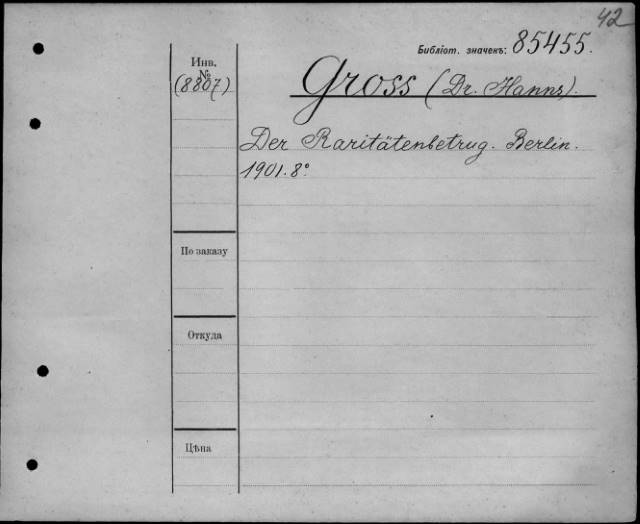 42
Библіот. значекъ: 85455.
Инв.
№
(8807)
Gross (Dr. Hanns).
Der Raritätenbetrug. Berlin.
1901. 8°
По заказу
Откуда
Цѣна